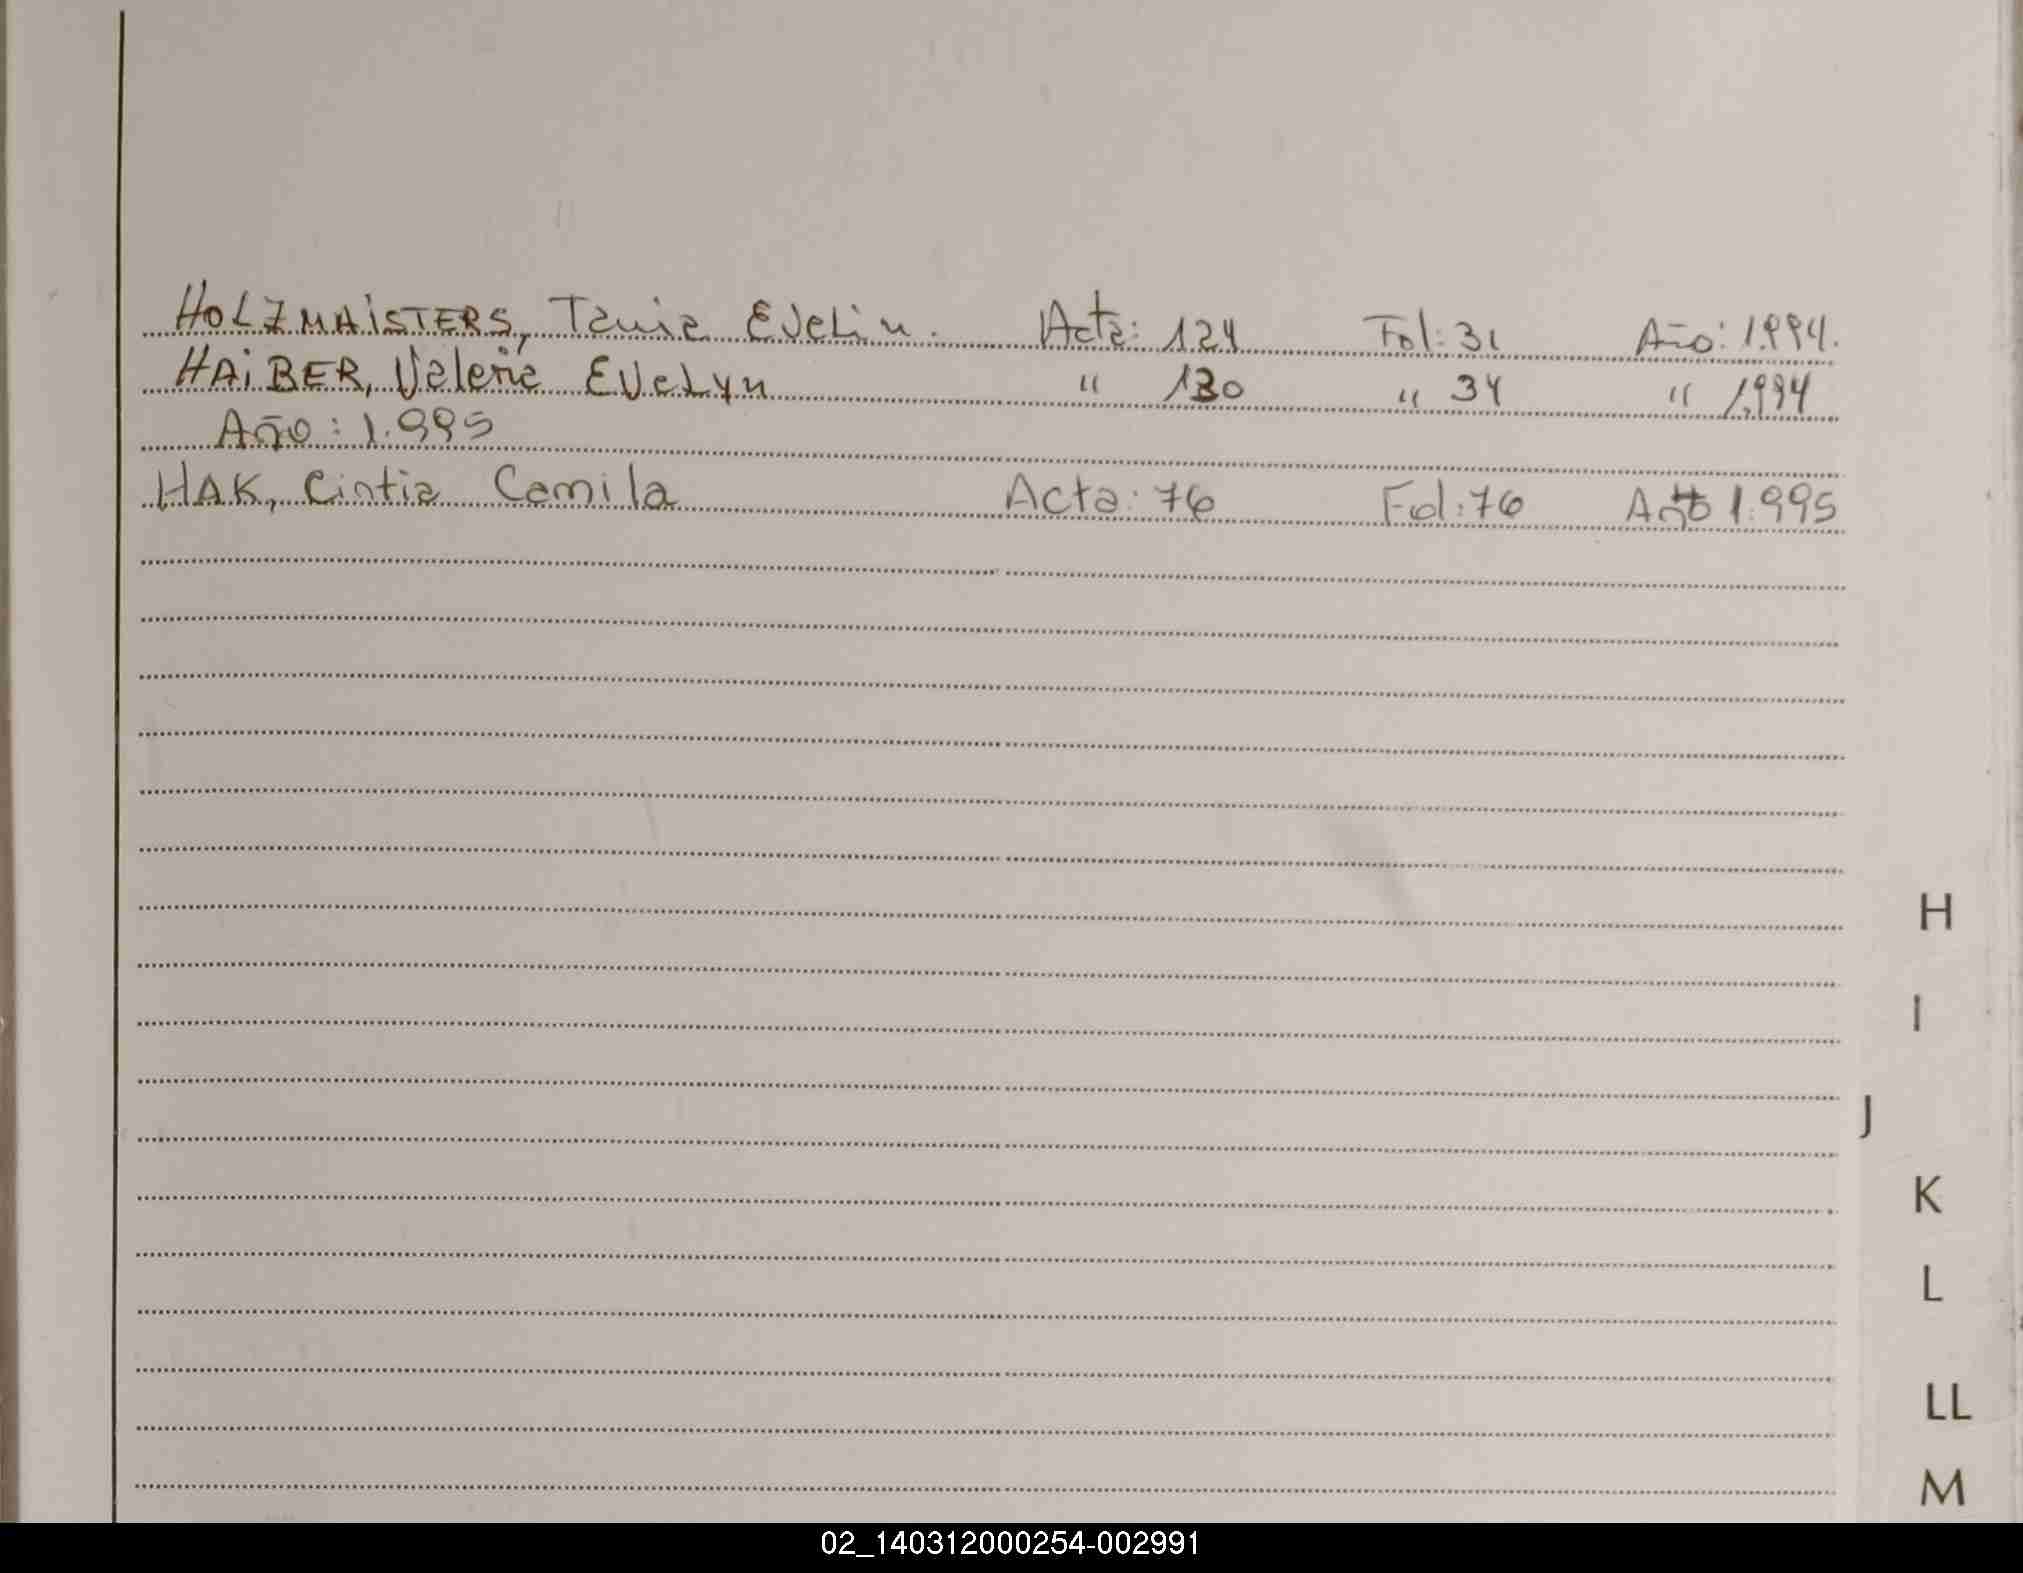 HOLZMAISTERS, Tania Evelin. Acta: 124 Fol: 31 Año: 1.994.
HAIBER, Valeria Evelyn " 130 " 34 " 1.994
Año: 1.995
HAK, Cintia Camila Acta: 76 Fol: 76 Año 1.995
H
I
J
K
L
LL
M
02_140312000254-002991